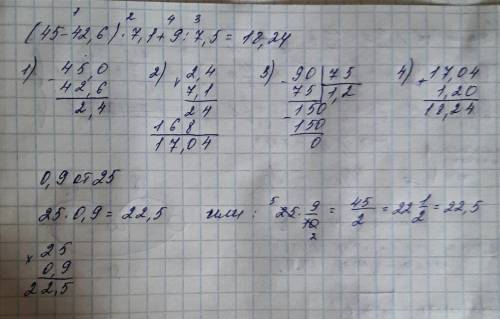 1 2 4 3
(45-42,6)·7,1+9:7,5=18,24
1) 45,0
- 42,6
2,4
2) 2,4
× 7,1
24
168
17,04
3) 90 | 75
- 75 | 1,2
150
- 150
0
4) 17,04
+ 1,20
18,24
0,9 от 25
25·0,9=22,5 или: ⁵25·9/10₂ = 45/2 = 22 1/2 = 22,5
25
× 0,9
22,5